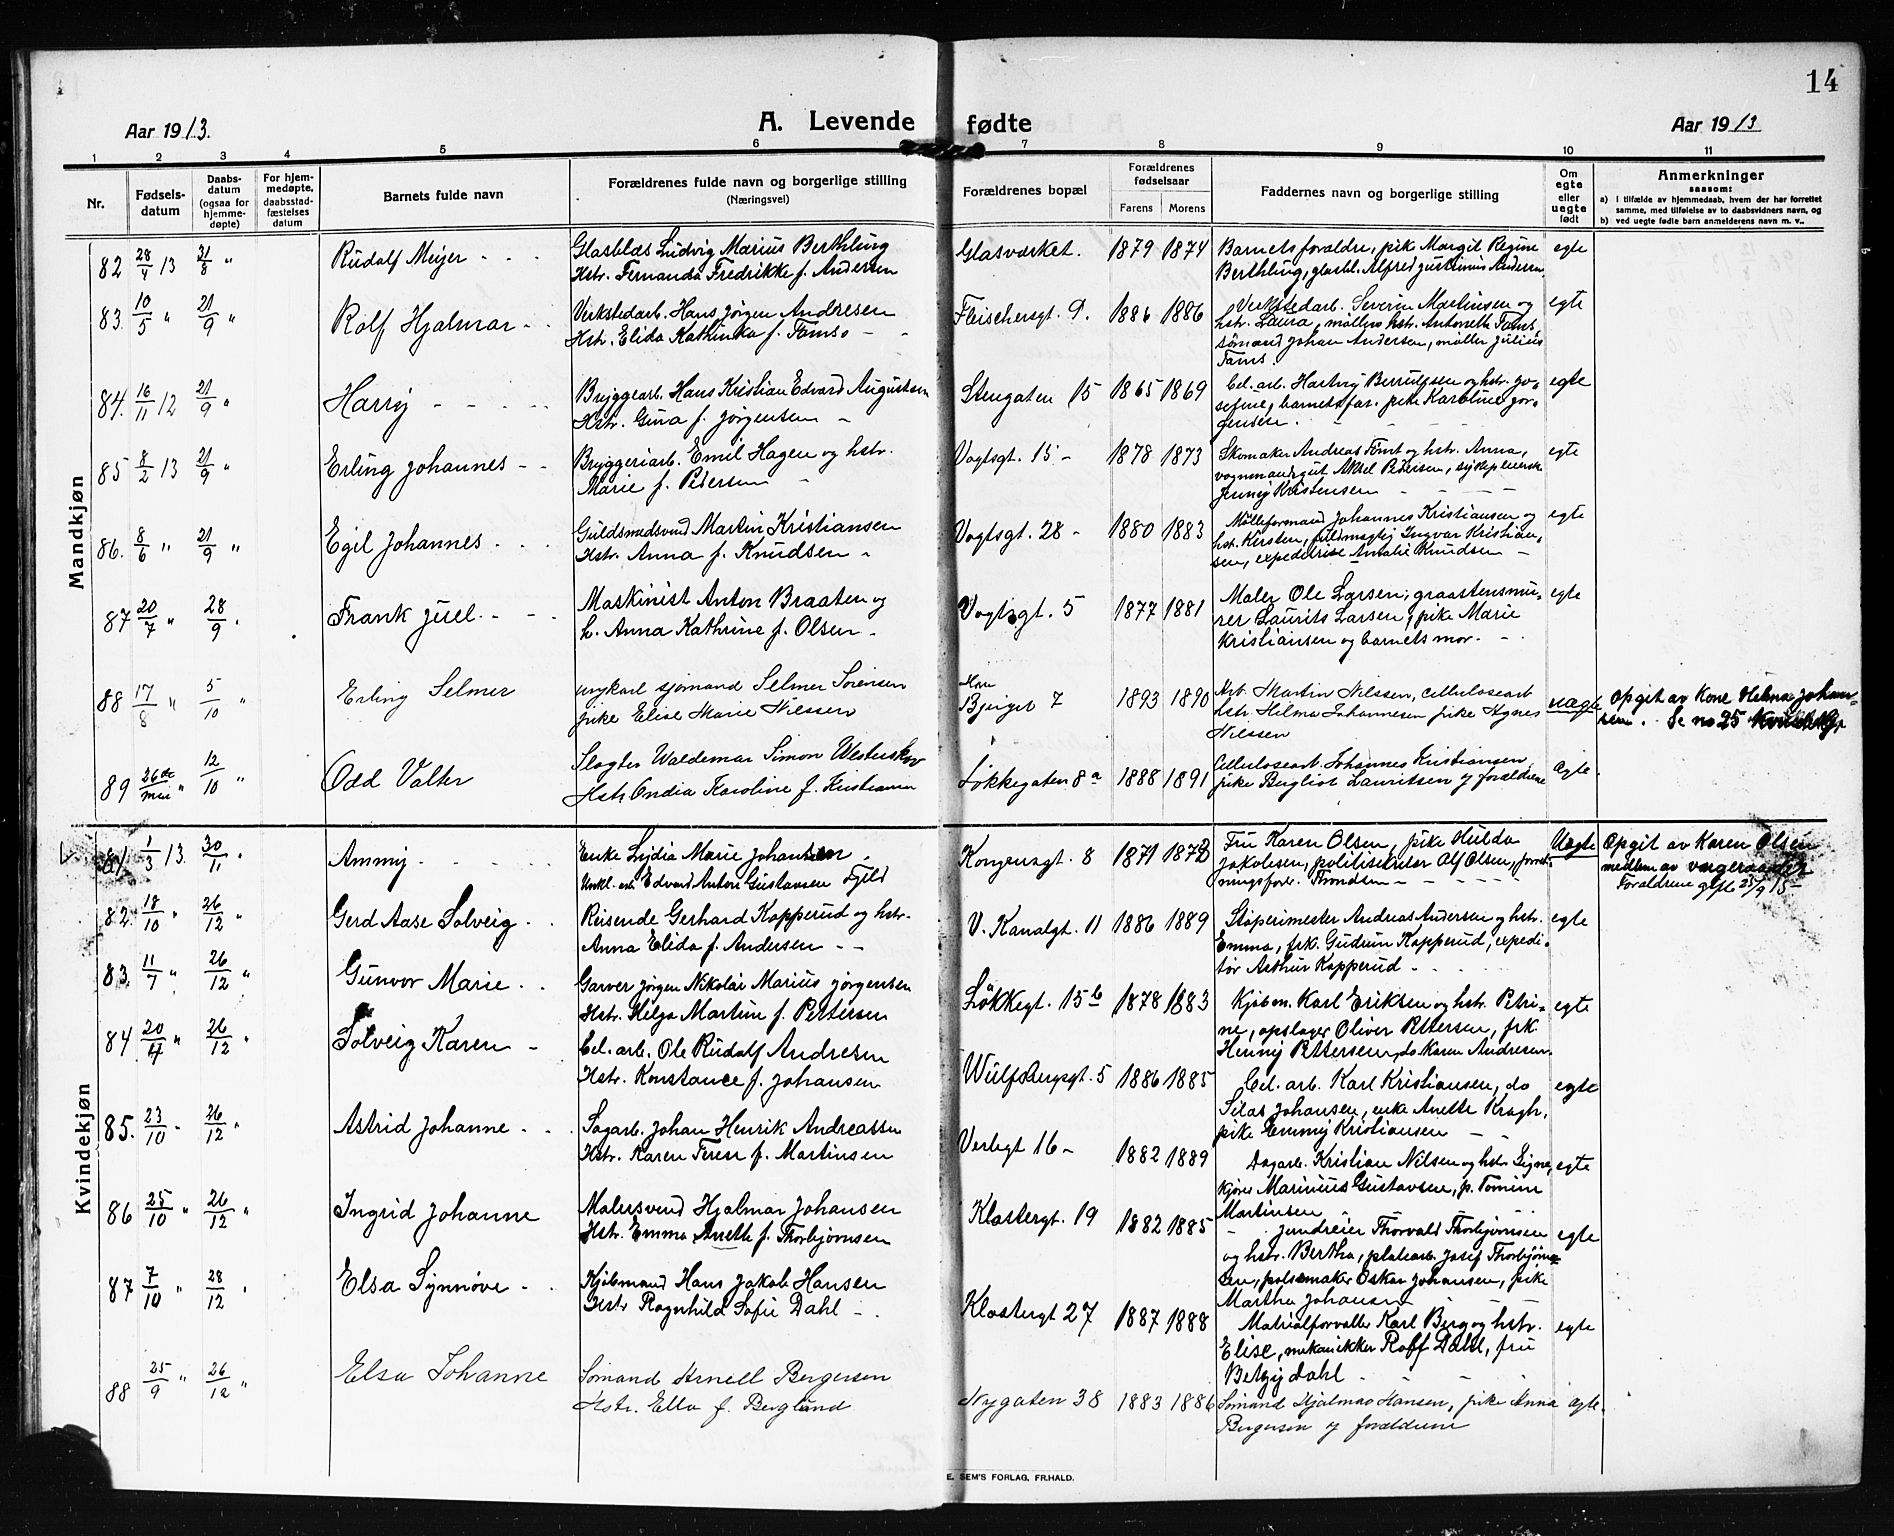 14
Aar 1913.
A. Levende fødte
Aar 1913
1 2 3 4 5 6 7 8 9 10 11
Nr.
Fødsels-
datum
Daabs-
datum
(ogsaa for
hjemme-
døpte)
For hjem-
medøpte,
daabsstad-
fæstelses
datum
Barnets fulde navn
Forældrenes fulde navn og borgerlige stilling
(Næringsvei)
Forældrenes bopæl
Forældrenes
fødselsaar
Farens Morens
Faddernes navn og borgerlige stilling
Om
egte
eller
uegte
født
Anmerkninger
saasom:
a) I tilfælde av hjemmedaab, hvem der har forrettet
samme, med tilføielse av to daabsvidners navn, og
b) ved uegte fødte barn anmelderens navn m. v.,
Mandkjøn
82 28/4 13 31/8 " Rudolf Meyer - - -
Ludvig Marius Berthling
Hstr. Fernanda Fredrikke f. Andersen
Glasværket. 1879 1874
Barnets forældre, pike Margit Regine
Berthling, glasbl. Alfred Justinius Andersen
egte
83. 10/5 " 21/9 " Rolf Hjalmar - -
Verkstedarb. Hans Jørgen Andresen
Hstr. Elida Kathinka f. Tamso -
Fleischersgt. 9. 1886 1886
Verkstedarb. Severin Martinsen og
hstr. Laura, møllers hstr. Antonette Tams,
sømand Johan Andersen, møller Julius
Tams.
egte
84. 16/11 12 21/9 " Harry - - - -
Bryggearb. Hans Kristian Edvard Augustsen
Hstr. Gina f. Jørgensen -
Stengaten 15 1865 1869
Cel. arb. Hartvig Berntsen og hstr. Jo-
sefine, barnets far. pike Karoline Jør-
gensen.
egte
85 8/2 13 21/9 " Erling Johannes - -
Bryggeriarb. Emil Hagen og hstr.
Marie f. Pedersen -
Vogtsgt. 15 - 1878 1873
Skomaker Andreas Tømt og hstr. Anna,
vognmandsgut Aksel Pedersen, sykepleierske
Jenny Kristensen
egte
86. 8/6 " 21/9 " Egil Johannes - -
Guldsmedsvend Martin Kristiansen
Hstr. Anna f. Knudsen -
Vogtsgt. 28 - 1880 1883
Mølleformand Johannes Kristiansen og
hstr. Kirsten, fuldmægtig Ingvar Kristian-
sen, expeditrise Amalie Knudsen -
egte
87 20/7 " 28/9 " Frank Juel - -
Maskinist Anton Braaten og
h. Anna Kathrine f. Olsen -
Vogtsgt. 5 1877 1881
Maler Ole Larsen, graastensmu-
rer Laurits Larsen, pike Marie
Kristiansen og barnets mor. -
egte
88 17/8 " 5/10 " Erling Selmer
ungkarl sjømand Selmer Sørensen
pike Elise Marie Nilssen
Bjerget 7 1893 1890
Arb. Martin Nilssen, cellulosearb
hstr Hilma Johannesen pike Agnes
Nilssen
uægte
Opgit av Kone Hilma Johan-
sen. Se no 25
89 26de/mai " 12/10 " Odd Valter
Slagter Waldemar Simon
Hstr Andia Karoline f. Kristiansen
Løkkegaten 8a 1888 1891
Cellulosearb. Johannes Kristiansen,
pike Bergliot Lauritsen og forældrene
ægte.
Kvindekjøn
81 1/3 13. 30/11 " Ammy - - - -
Enke Lydia Marie Johansen
Edvard Anton Gustavsen
Kongensgt. 8 1871 1872
Fru Karen Olsen, pike Hulda
Jakobsen, politibetjent Alf Olsen, forret-
ningsfører Trondsen - - -
Uegte
Opgit av Karen Olsen
medlem av vergeraadet
Forældrene gifte 25/9 15 -
82. 18/10 " 26/12 " Gerd Aase Solveig - -
Reisende Gerhard Kopperud og hstr.
Anna Elida f. Andersen - -
V. Kanalgt. 11 1886 1889
Støperimester Andreas Andersen og hstr.
Emma, frk. Gudrun Kopperud, expedi-
tør Arthur Kopperud -
egte
83. 11/7 " 26/12 " Gunvor Marie - -
Garver Jørgen Nikolai Marius Jørgensen
Hstr. Helga Martine f. Pettersen
Løkkegt. 15b 1878 1883
Kjøbm. Karl Eriksen og hstr. Petri-
ne, opslager Oliver Pettersen, frk.
Henny Pettersen, do Karen Andresen.
egte
84 20/4 " 26/12 " Solveig Karen -
Cel. arb. Ole Rudolf Andresen
Hstr. Konstance f. Johansen
Wulfsbergsgt. 5 1886 1885
Cel. arb. Karl Kristiansen, do
Silas Johansen, enke Anette Kragh,
pike Emmy Kristiansen -
egte
85. 23/10 " 26/12 " Astrid Johanne - -
Sagarb. Johan Henrik Andreassen
Hstr. Karen Terese f. Martinsen
Verlegt 16 - 1882 1889
Dagarb. Kristian Nilsen og hstr Signe,
kjører Marinius Gustavsen, p. Tomine
Martinsen
egte
86 25/10 " 26/12 " Ingrid Johanne
Malersvend Hjalmar Johansen
Hstr. Emma Anette f. Thorbjørnsen
Klostergt. 19 1882 1885
- Jendreier Thorvald Thorbjørnsen
og hstr. Bertha, platearb. Josef Thorbjørn-
sen, pølsemaker Oskar Johansen, pike
Martha Johansen
egte
87 7/10 " 28/12 " Elsa Synnøve - -
Kjøbmand Hans Jakob Hansen
Hstr Ragnhild Sofie Dahl - -
Klostergt 27 1887 1888
Matrialforvalter Karl Berg og hstr.
Elise, mekanikker Rolf Dahl, fru
Betzy Dahl -
egte
88 25/9 " 26/12 " Elsa Johanne
Sømand Arnell Bergersen
Hstr. Ella f. Berglund
Nygaten 38 1883 1886
Sømand Hjalmar Hansen, pike Anna
Bergersen og forældrene
ægte.
E. SEM'S FORLAG, FR.HALD.